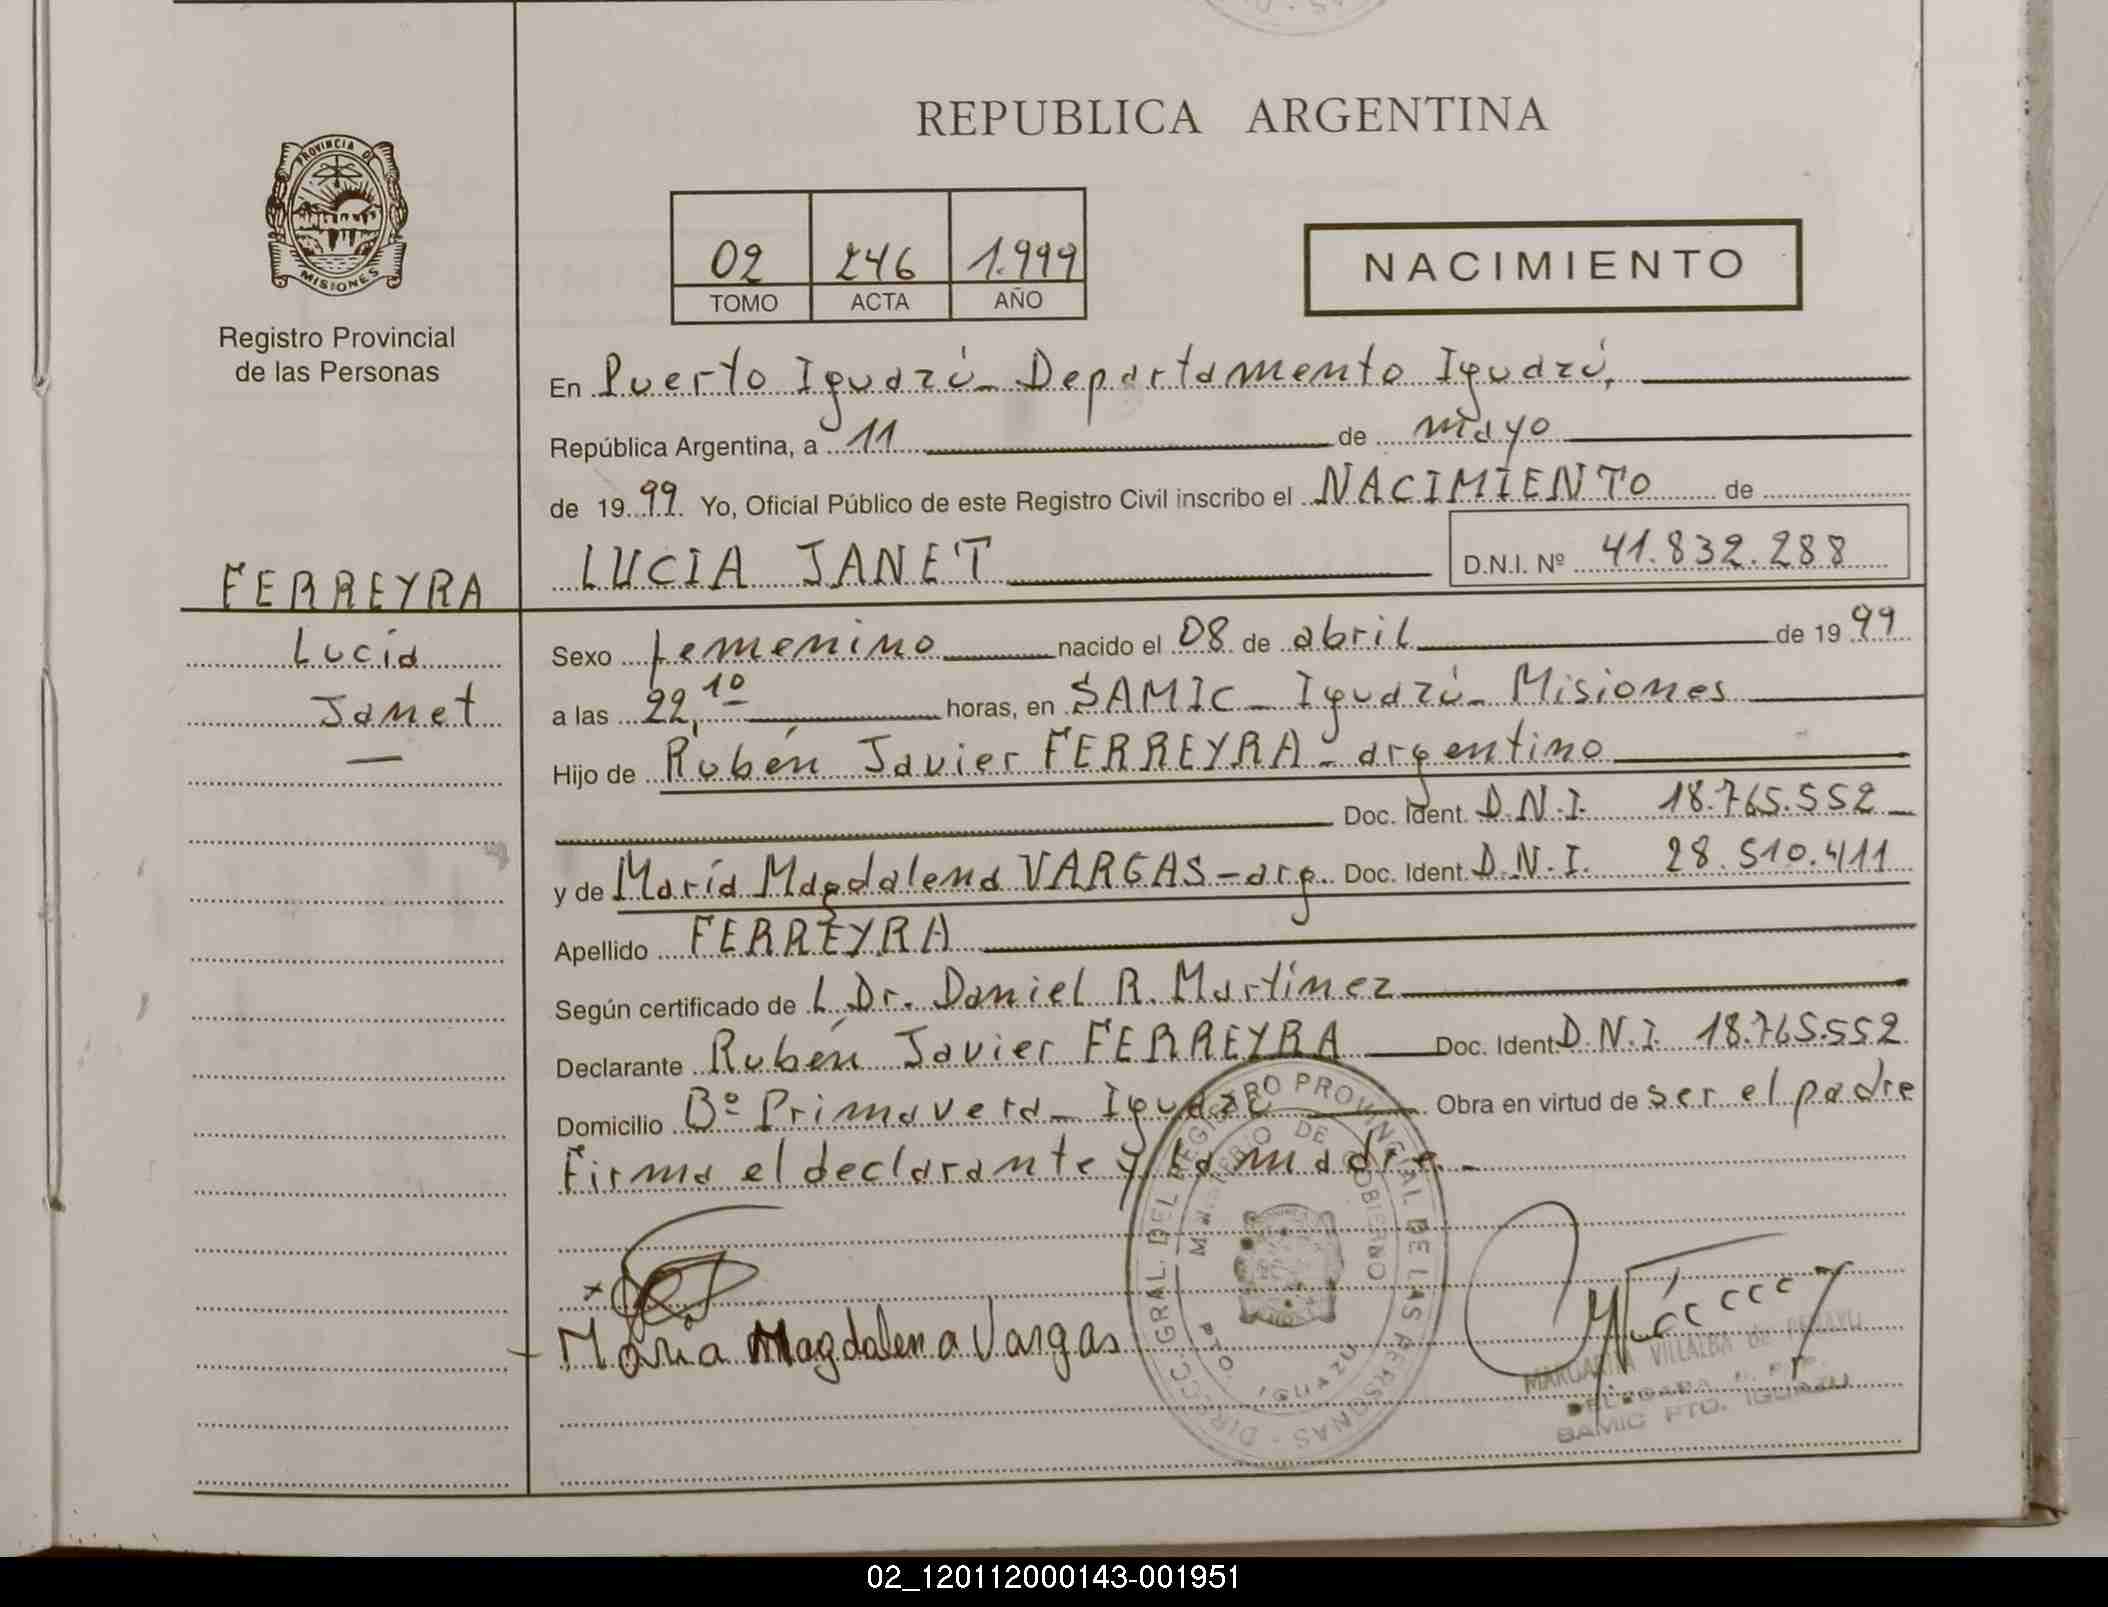 REPUBLICA ARGENTINA
PROVINCIA DE
MISIONES
Registro Provincial
de las Personas
02 246 1.999
TOMO ACTA AÑO
NACIMIENTO
En Puerto Iguazú - Departamento Iguazú,
República Argentina, a 11 de mayo
de 1999 Yo, Oficial Público de este Registro Civil inscribo el NACIMIENTO de
LUCIA JANET D.N.I. Nº 41.832.288
FERREYRA
Lucía
Janet
Sexo femenino nacido el 08 de abril de 1999
a las 22,10 horas, en SAMIC - Iguazú - Misiones
Hijo de Rubén Javier FERREYRA - argentino
Doc. Ident. D.N.I. 18.765.552
y de María Magdalena VARGAS - arg. Doc. Ident. D.N.I. 28.510.411
Apellido FERREYRA
Según certificado de L Dr. Daniel R. Martínez
Declarante Rubén Javier FERREYRA Doc. Ident. D.N.I. 18.765.552
Domicilio Bº Primavera - Iguazú Obra en virtud de ser el padre
Firma el declarante y la madre. -
Maria Magdalena Vargas
DIRECC. GRAL. DEL REGISTRO PROVINCIAL DE LAS PERSONAS
MINISTERIO DE GOBIERNO
MARGARITA VILLALBA de
SAMIC PTO. IGUAZU
02_120112000143-001951